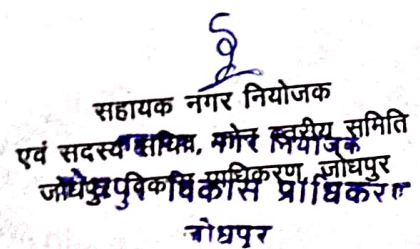 सहायक नगर नियोजक
एवं सदस्य सचिव, जोन स्तरीय समिति
जोधपुर विकास प्राधिकरण, जोधपुर
नगर नियोजक
विकास प्राधिकरण
जोधपुर